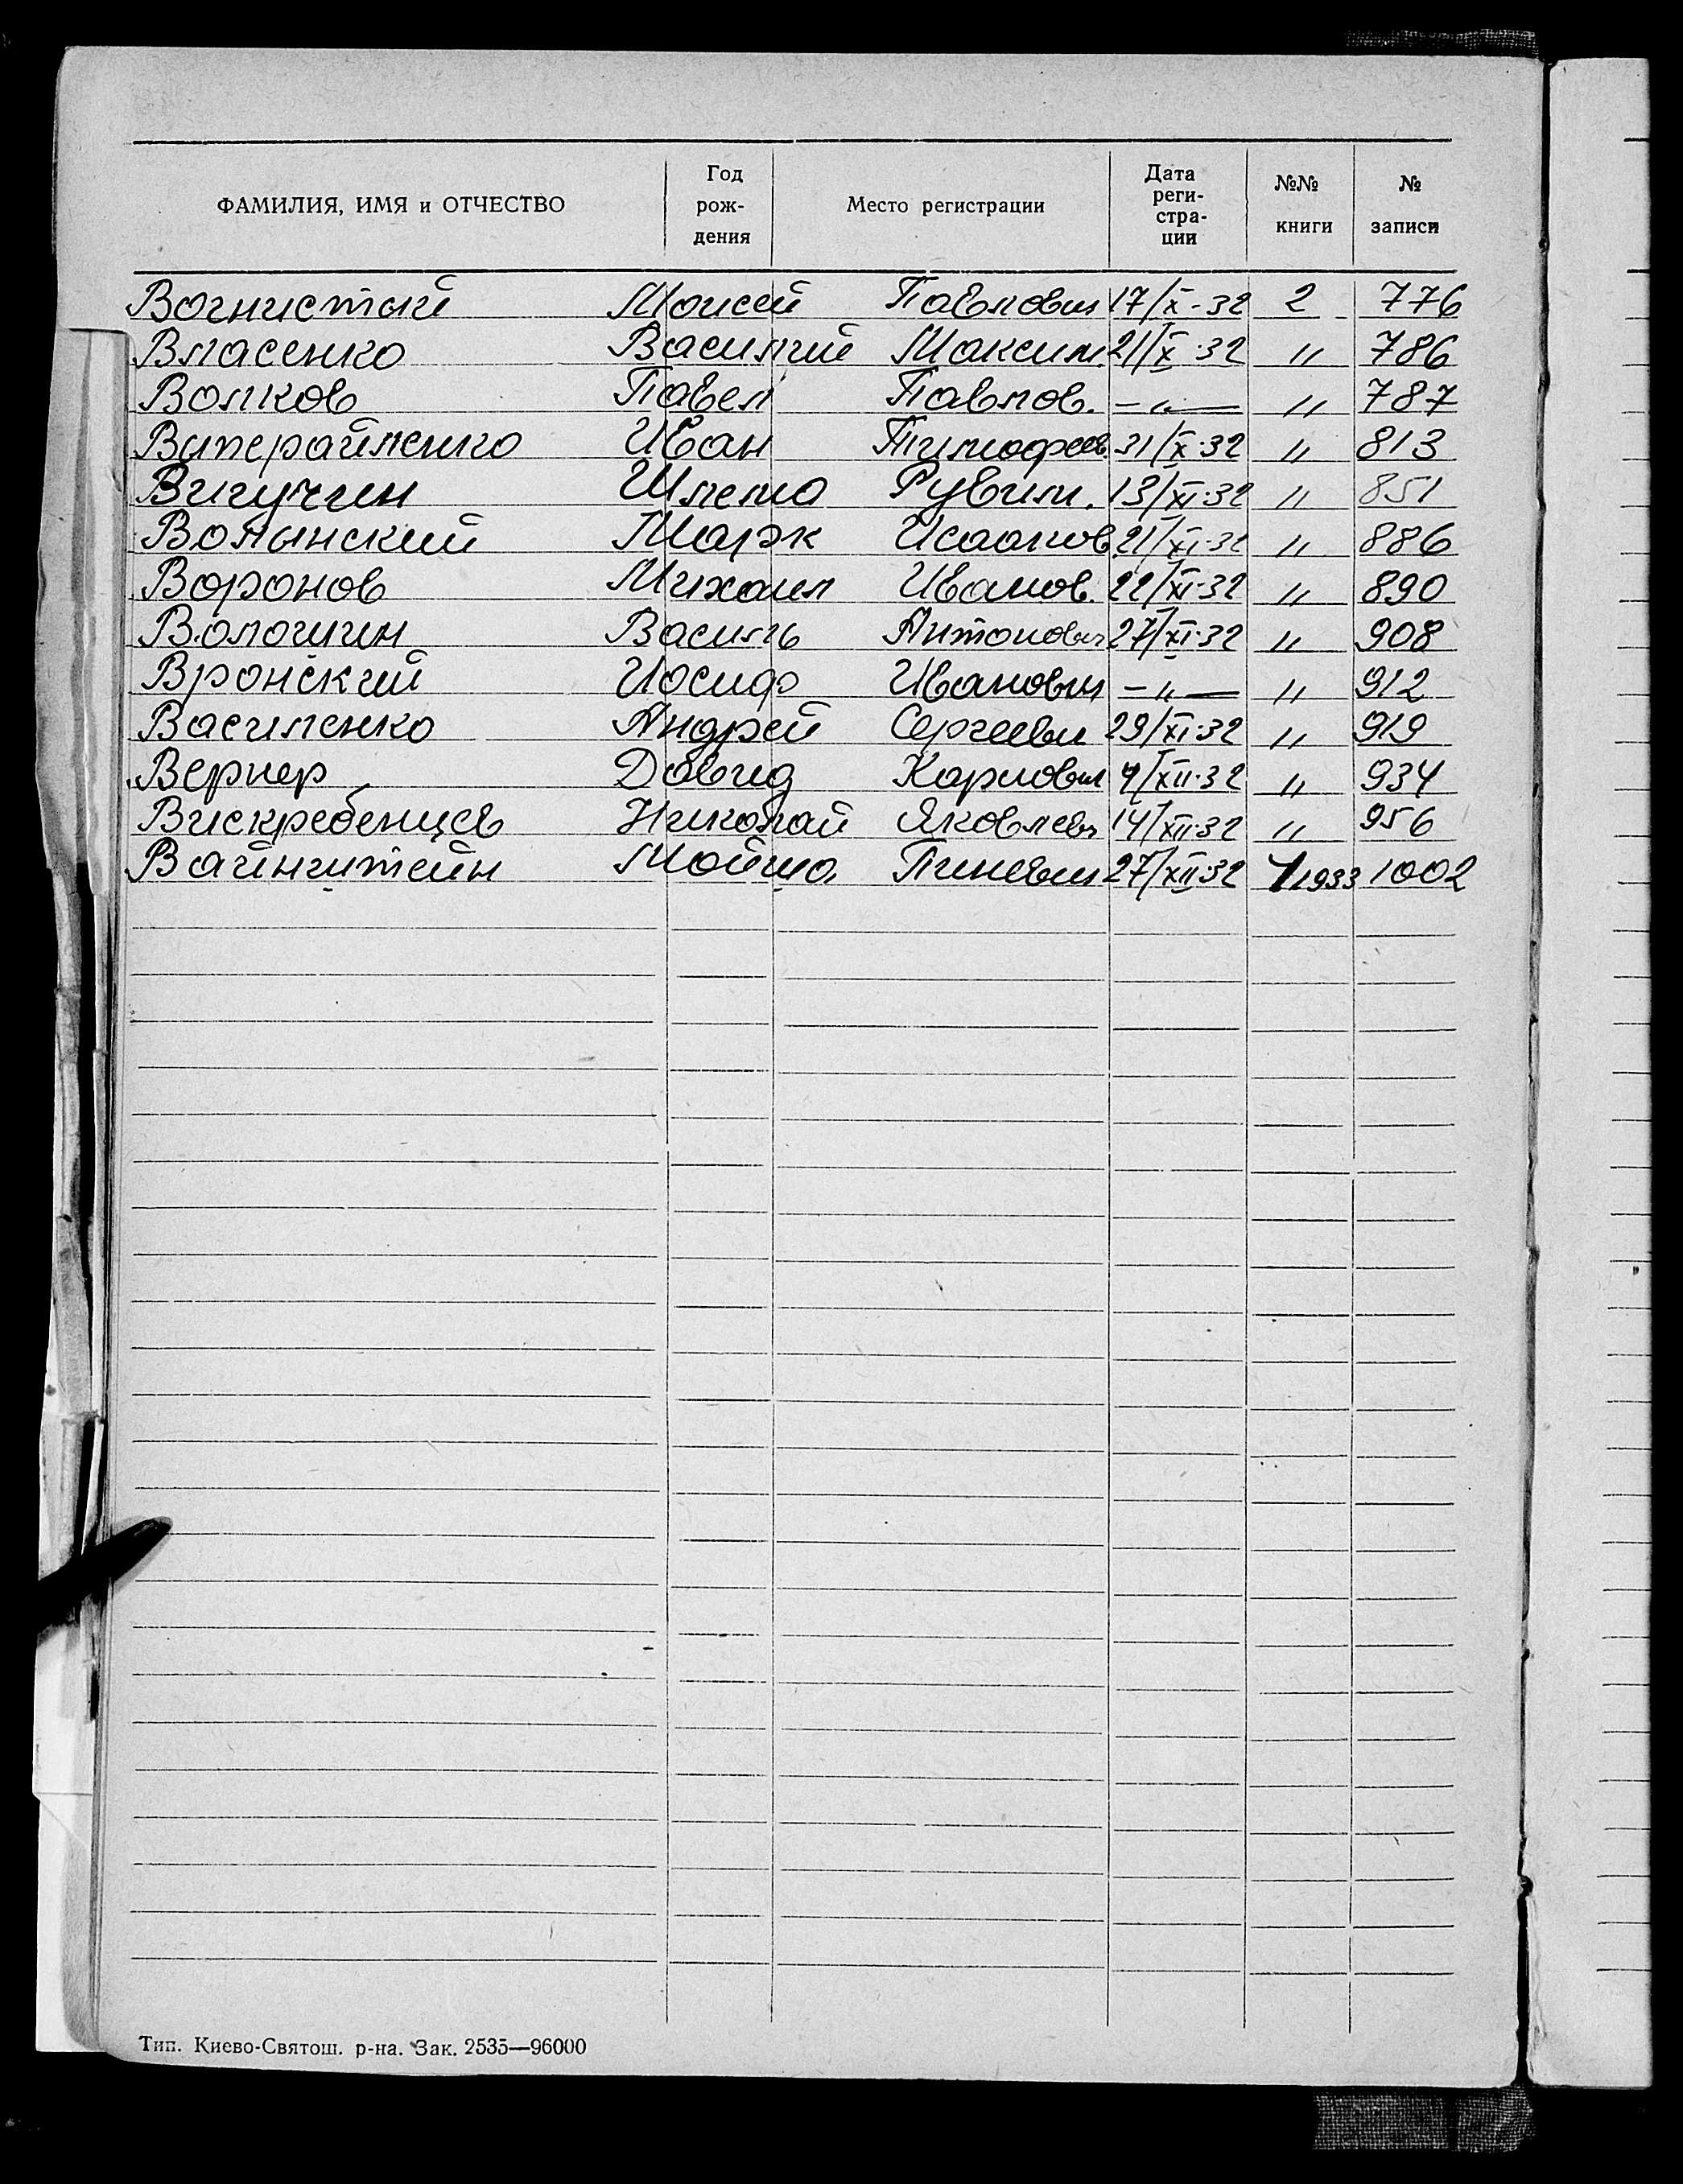 ФАМИЛИЯ, ИМЯ и ОТЧЕСТВО Год рождения Место регистрации Дата регистрации №№ книги № записи
Вогнистый Моисей Павлович 17/X-32 2 776
Власенко Василий Максим. 21/X-32 " 786
Волков Павел Павлов. -"- " 787
Иван Тимофеев. 31/X-32 " 813
Вигучин Шлема Рувим. 13/XI-32 " 851
Волынский Марк Исааков 21/XI-32 " 886
Воронов Михаил Иванов. 22/XI-32 " 890
Вологин Василь Антонович 27/XI-32 " 908
Вронский Иосиф Иванович -"- " 912
Василенко Андрей Сергеевич 29/XI-32 " 919
Вернер Давид Карлович /XII-32 " 934
Вискребенцев Николай Яковлев 14/XII-32 " 956
Вайнштейн Мойша Пиневич 27/XII-32 1/1933 1002
Тип. Киево-Святош. р-на. Зак. 2535—96000